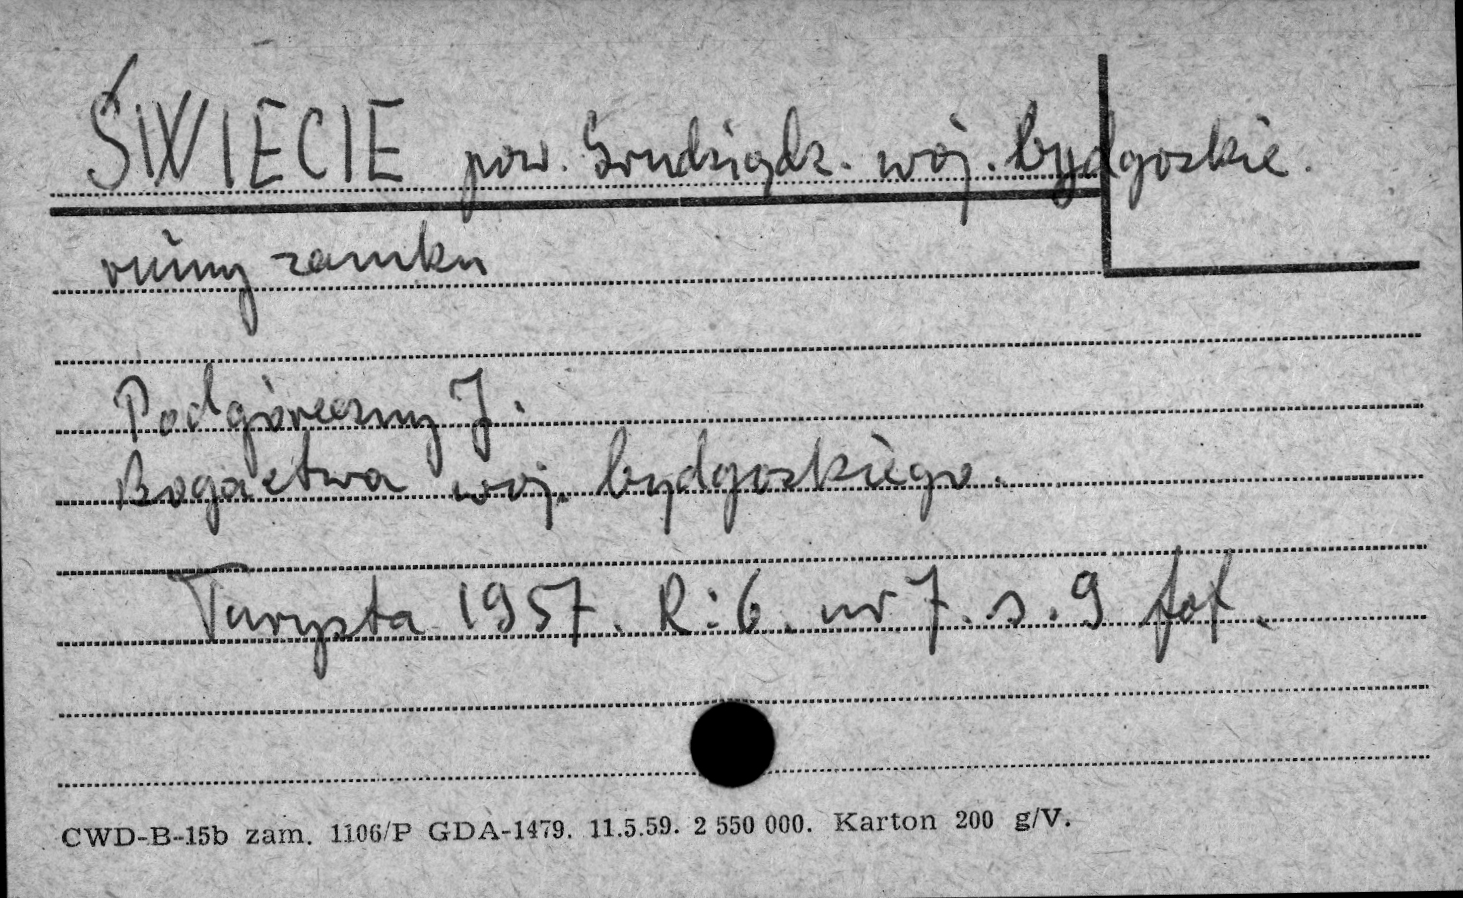 ŚWIECIE pow. Grudziądz. woj. bydgoskie.
ruiny zamku
Podgóreczny J.
Bogactwa woj. bydgoskiego.
Turysta 1957. R:6. nr 7. s. 9 fot.
CWD-B-15b zam. 1106/P GDA-1479. 11.5.59. 2 550 000. Karton 200 g/V.